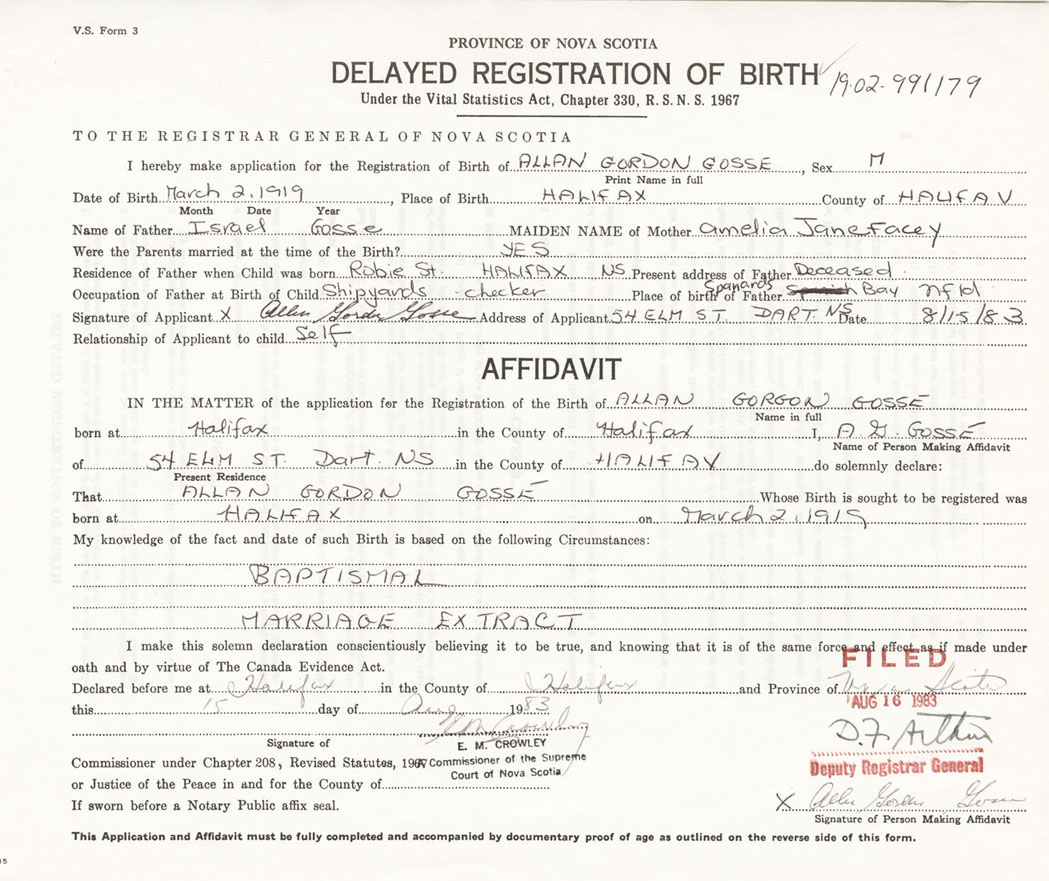 V.S. Form 3
PROVINCE OF NOVA SCOTIA
DELAYED REGISTRATION OF BIRTH 19-02-991179
Under the Vital Statistics Act, Chapter 330, R.S.N.S. 1967
TO THE REGISTRAR GENERAL OF NOVA SCOTIA
I hereby make application for the Registration of Birth of ALLAN GORDON GOSSE, Sex M
Print Name in full
Date of Birth March 2, 1919, Place of Birth HALIFAX County of HALIFAX
Month Date Year
Name of Father Israel Gosse MAIDEN NAME of Mother Amelia Jane Facey
Were the Parents married at the time of the Birth? YES
Residence of Father when Child was born Robie St. HALIFAX NS Present address of Father Deceased
Occupation of Father at Birth of Child Shipyards checker Place of birth of Father Spanards Bay nfld
Signature of Applicant X Allan Gordon Gosse Address of Applicant 54 ELM ST. DART. NS Date 8/15/83
Relationship of Applicant to child Self
AFFIDAVIT
IN THE MATTER of the application for the Registration of the Birth of ALLAN GORGON GOSSE
Name in full
born at Halifax in the County of Halifax I, A G. GOSSE
Name of Person Making Affidavit
of 54 ELM ST. Dart. NS in the County of HALIFAX do solemnly declare:
Present Residence
That ALLAN GORDON GOSSE Whose Birth is sought to be registered was
born at HALIFAX on March 2, 1919
My knowledge of the fact and date of such Birth is based on the following Circumstances:
BAPTISMAL
MARRIAGE EXTRACT
I make this solemn declaration conscientiously believing it to be true, and knowing that it is of the same force and effect as if made under
oath and by virtue of The Canada Evidence Act.
FILED
Declared before me at Halifax in the County of Halifax and Province of Nova Scotia
this 15 day of Aug 1983
AUG 16 1983
E M Crowley
D.F. Arthur
Signature of E. M. CROWLEY
Commissioner under Chapter 208, Revised Statutes, 1967 Commissioner of the Supreme
Court of Nova Scotia
Deputy Registrar General
or Justice of the Peace in and for the County of
If sworn before a Notary Public affix seal.
X Allan Gordon Gosse
Signature of Person Making Affidavit
This Application and Affidavit must be fully completed and accompanied by documentary proof of age as outlined on the reverse side of this form.